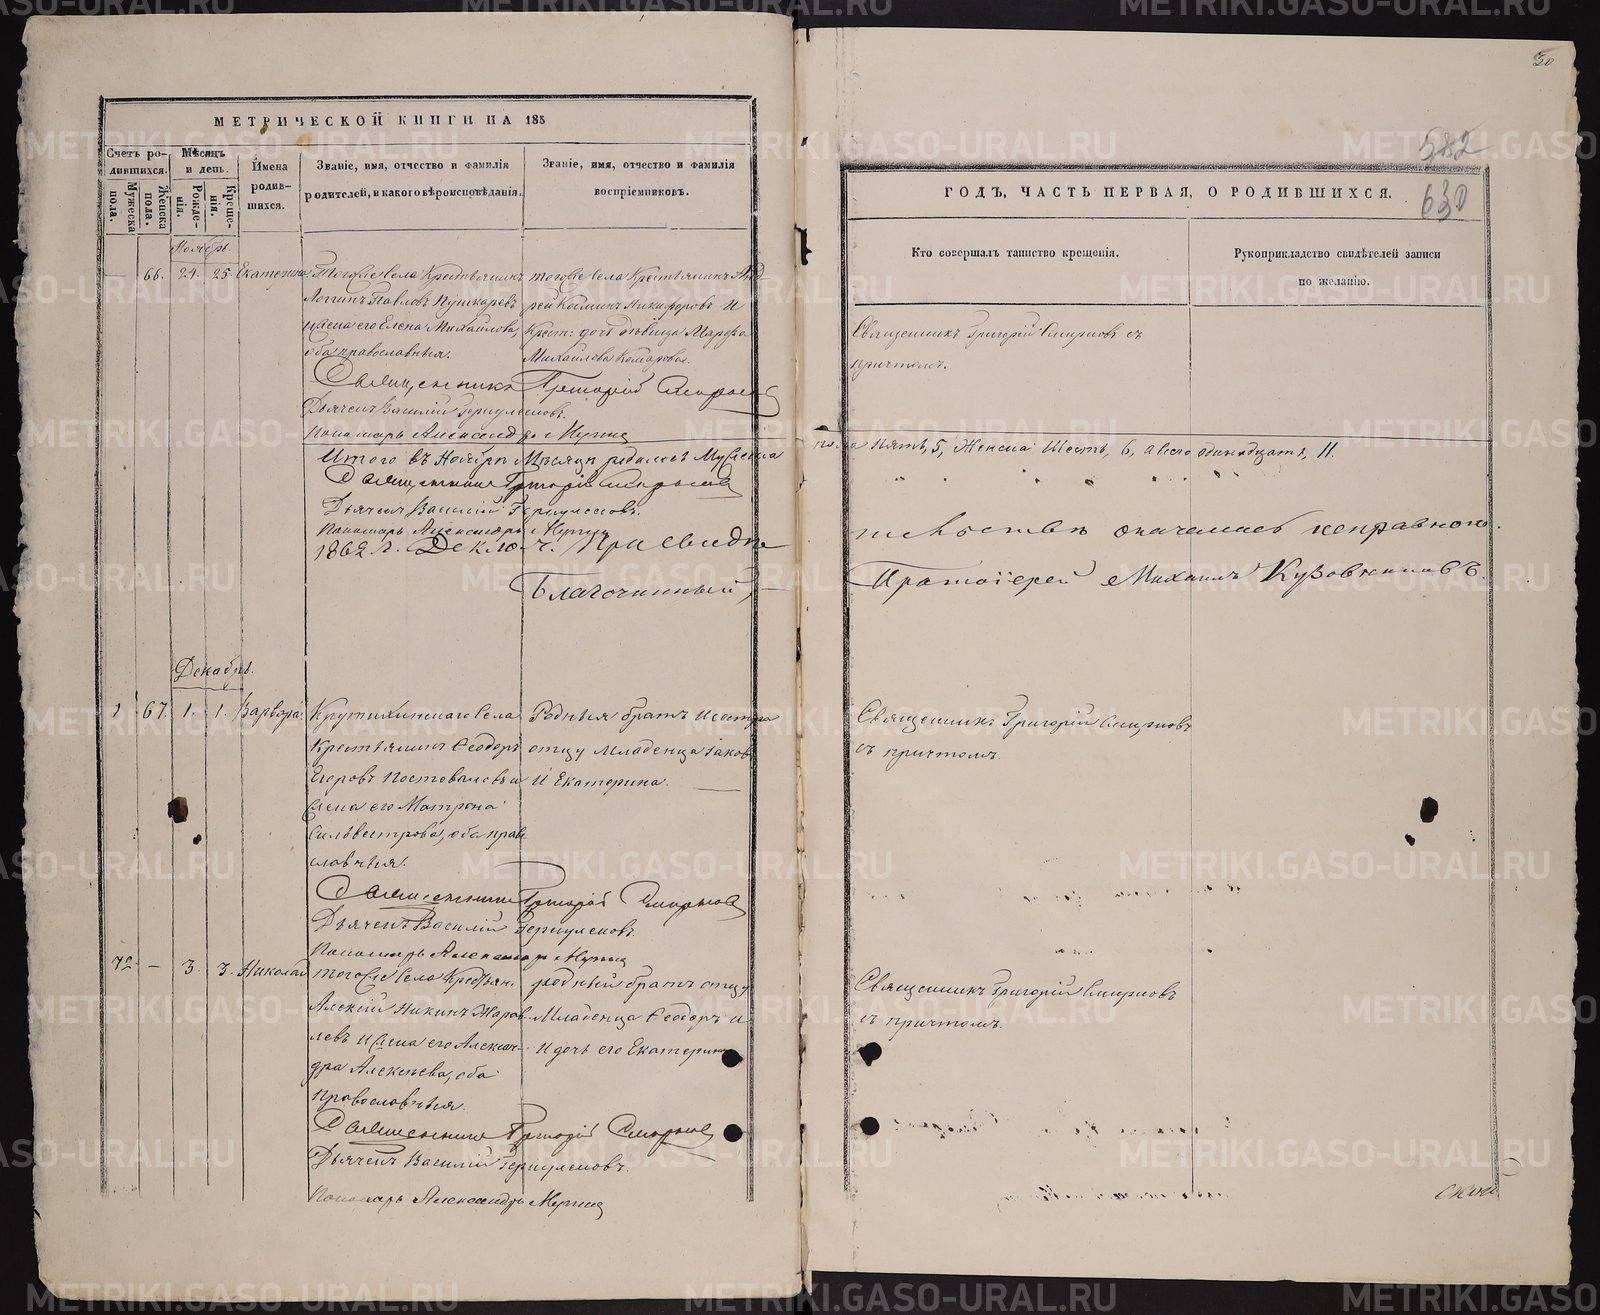 МЕТРИЧЕСКОЙ КНИГИ НА 185
Счетъ родившихся.
Мужеска пола.
Женска пола.
Мѣсяцъ и день.
Рожденія.
Крещенія.
Имена родившихся.
Званіе, имя, отчество и фамилія
родителей, и какого вѣроисповѣданія.
Званіе, имя, отчество и фамилія
воспріемниковъ.
Ноябрь.
— 66. 24. 25 Екатерина
Тогоже села Крестьянинъ
Логгинъ Павловъ Пушкаревъ
и жена его Елена Михайлова,
оба православныя.
тогоже села Крестьянинъ Анд
рей Косминъ Никифоровъ и
Крест: дочь дѣвица Марфа
Михайлова Комарова.
Священникъ Григорій Смирновъ
Дьячекъ Василій
Пономарь Александръ
Итого въ Ноябрѣ Мѣсяцѣ родилось Мужеска
Священникъ Григорій Смирновъ
Дьячекъ Василій
Пономарь Александръ
1862 г. Дек. При свидѣ
Благочинный,
Декабрь.
67. 1. 1. Варвара
Крутихинскаго села
Крестьянинъ Ѳеодоръ
Егоровъ Постоваловъ и
жена его Матрона
Сильвестрова, оба право
славныя.
Родныя братъ и сестра
отцу младенца Іаковъ
и Екатерина.
Священникъ Григорій Смирновъ
Дьячекъ Василій
Пономарь Александръ
72 — 3. 3. Николай
тогоже села Крестьян.
Алексій Никинъ Жаров
левъ и жена его Алексан-
дра Алексѣева, оба
православныя.
родный братъ отцу
младенца Ѳеодоръ и
и дочь его Екатерина
Священникъ Григорій Смирновъ
Дьячекъ Василій
Пономарь Александръ
50
582
630
ГОДЪ, ЧАСТЬ ПЕРВАЯ, О РОДИВШИХСЯ.
Кто совершалъ таинство крещенія.
Рукоприкладство свидѣтелей записи
по желанію.
Священникъ Григорій Смирновъ съ
причтомъ.
пола Пять, 5, Женска Шесть, 6, а всего одинадцать, 11.
тельствѣ оказались исправною.
Протоіерей Михаилъ Кузовниковъ.
Священникъ Григорій Смирновъ
съ причтомъ.
Священникъ Григорій Смирновъ
съ причтомъ.
METRIKI.GASO-URAL.RU